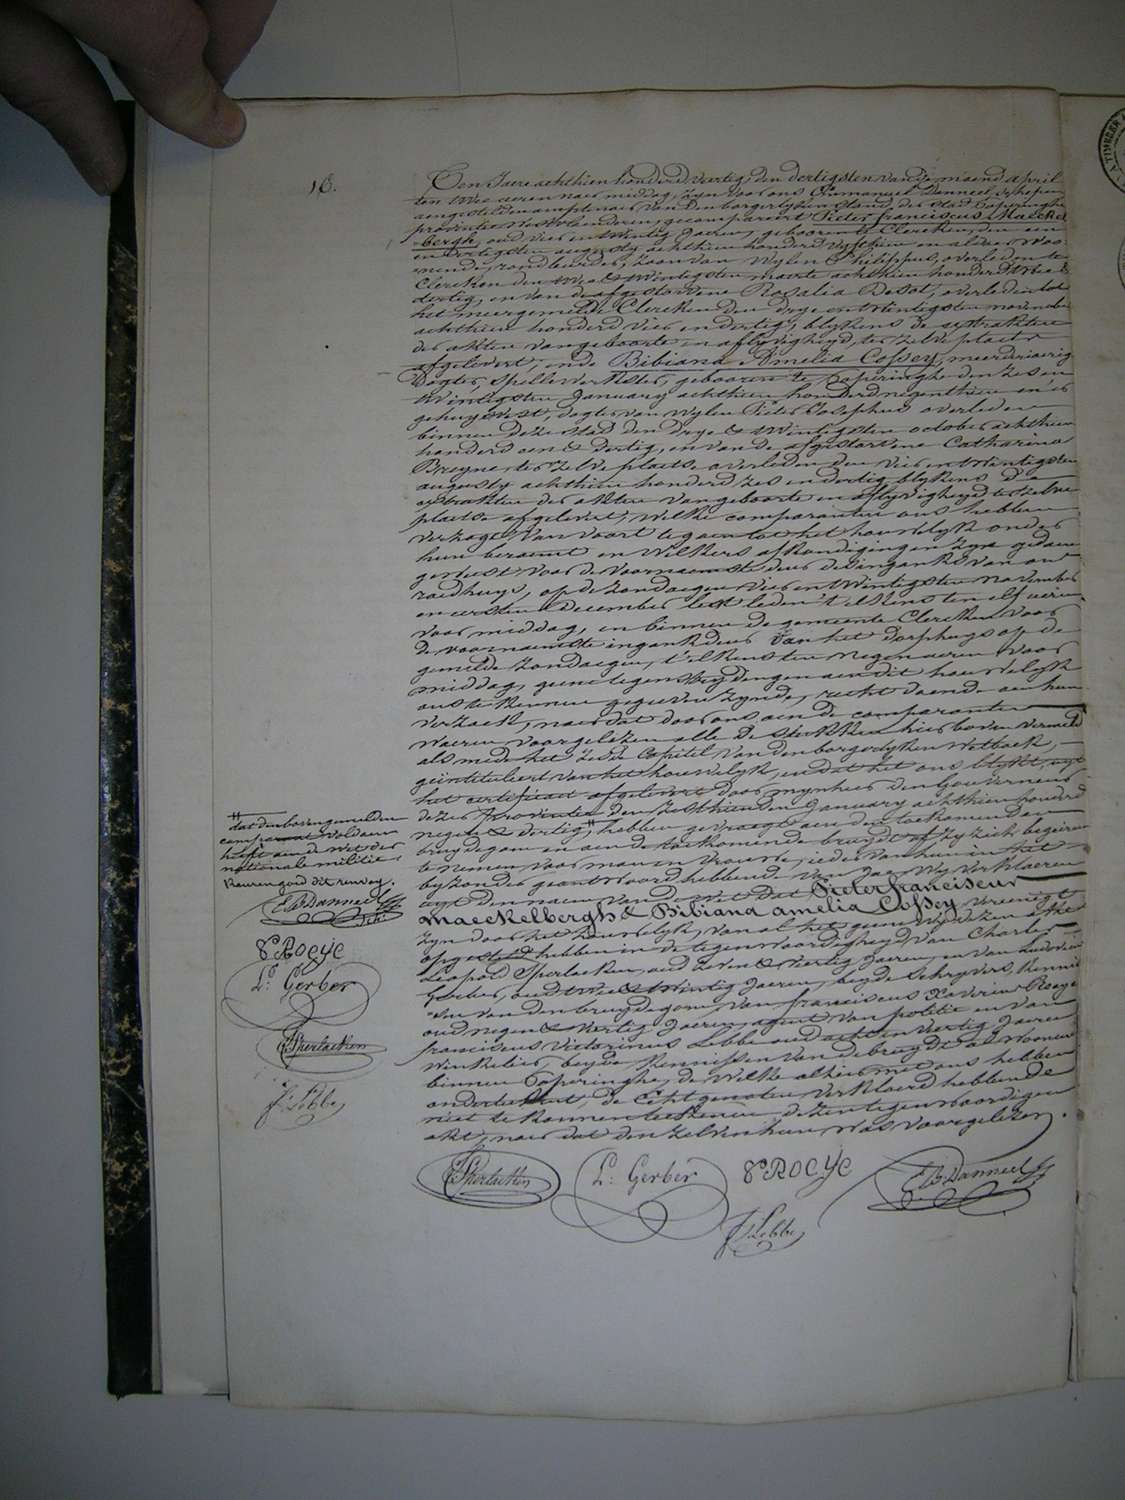 16.
Ten Jaere achthien honderd veertig, den dertigsten van de maend april
ten twee ueren naer middag, zyn voor ons Emmanuel Danneel, schepen
aengestelden amptenaer van den borgerlyken stand, der stad Poperinghe
provintie Westvlaenderen, gecompareert Pieter franciscus Maeckel
bergh, oud vier en twintig Jaeren, geboren te Clercken, den een
en dertigsten augusty achthien honderd vyfthien en aldaer woo
nende, landbouder, zoon van wylen Philippus, overleden te
Clercken den twee & twintigsten maerte achthien honderd twee &
dertig, en van de afgestorvene Rosalia Desot, overleden tot
het meergemelde Clercken den drye en twintigsten november
achthien honderd vier en dertig, blykens de extrakten
der akten van geboorte en aflyvigheyd, ter zelve plaets
afgelevert, ende Bibiana Amelia Cossey, meerderjaerig
Dogter, spellewerkster, geboren te Poperinghe den zes en
twintigsten January achthien honderd negenthien en er
gehuysvest, dogter van wylen Pieter Josephus overleden
binnen deze stad den drye & twintigsten october achthien
honderd een & dertig, en van de afgestorvene Catharina
Breyne, ter zelve plaetse overleden den vier en twintigsten
augusty achthien honderd zes en dertig blykens d'
extrakten der akten van geboorte en aflyvigheyd te zelve
plaetse afgelevert, welke comparanten ons hebben
verzogt van voort te gaen tot het houwelyk onder
hun beraemt en welkers afkondigingen zyn gedaen
geweest voor de voornaemste deur des inganks van ons
raedhuys, op de zondaegen vier en twintigsten november
en eersten December lest leden t'elkens ten elf ueren
voor middag, en binnen de gemeente Clercken voor
de voornaemste ingankdeur van het dorphuys op de
gemelde zondaegen, t'elkens ten negen ueren voor
middag, geene tegenstrydingen aen dit houwelyk
ons te kennen gegeven zynde, recht doende aen hun
verzoek, naer dat door ons aen de comparanten
waeren voorgelezen alle de stukken hier boven vermeld
als mede het zesde Capitel van den borgerlyken wetboek,
geintituleert van het houwelyk, en dat het ons blykt, uyt
het certificaet afgelevert door mynheer den Gouverneur
dezer Provintie den zesthienden January achthien honderd
negen & dertig, # hebben gevraegt aen den toekomenden
bruydegom en aen de toekomende bruydt of zy zich begeiren
te nemen voor man en vrouwe, ieder van hun in het
byzonder geantwoord hebbende van Jae, wy verklaeren
uyt den naem van de wet dat Pieter franciscus
Maeckelbergh & Bibiana amelia Cossey vereenigt
zyn door het houwelyk, van al het geene wy dezen akte
opgesteld hebben in de tegenwoordigheyd van Charles
Leopold Sperlaecken, oud zeven & veertig Jaeren, en van
Gerber, oud twee & twintig Jaeren, beyde schryvers, kennis
sen van den bruydegom, van franciscus Xaverius Rocye
oud negen & veertig Jaeren, agent van politie en van
franciscus Victorinus Lebbe oud acht en veertig Jaeren
winkelier, beyde kennissen van de bruydt al woonende
binnen Poperinghe, de welke alhier met ons hebben
onderteekent, de Echtgenoten verklaerd hebbende
niet te konnen teekenen dezen tegenwoordigen
akt, naer dat den zelven hun was voorgelezen.
# dat den bovengemelden
comparant voldaen
heeft aen de wet der
nationale militie.
Keuren goed dit renvoy.
E. B. Danneel
Fs ROCYE
L: Gerber
Sperlaecken
f: Lebbe
Sperlaecken
L: Gerber
Fs ROCYE
E. B. Danneel
f: Lebbe